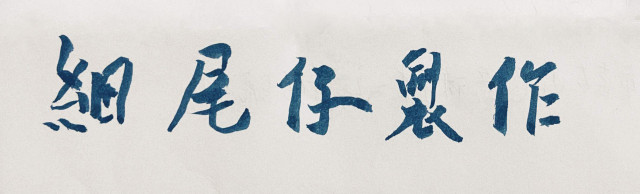 細尾仔製作